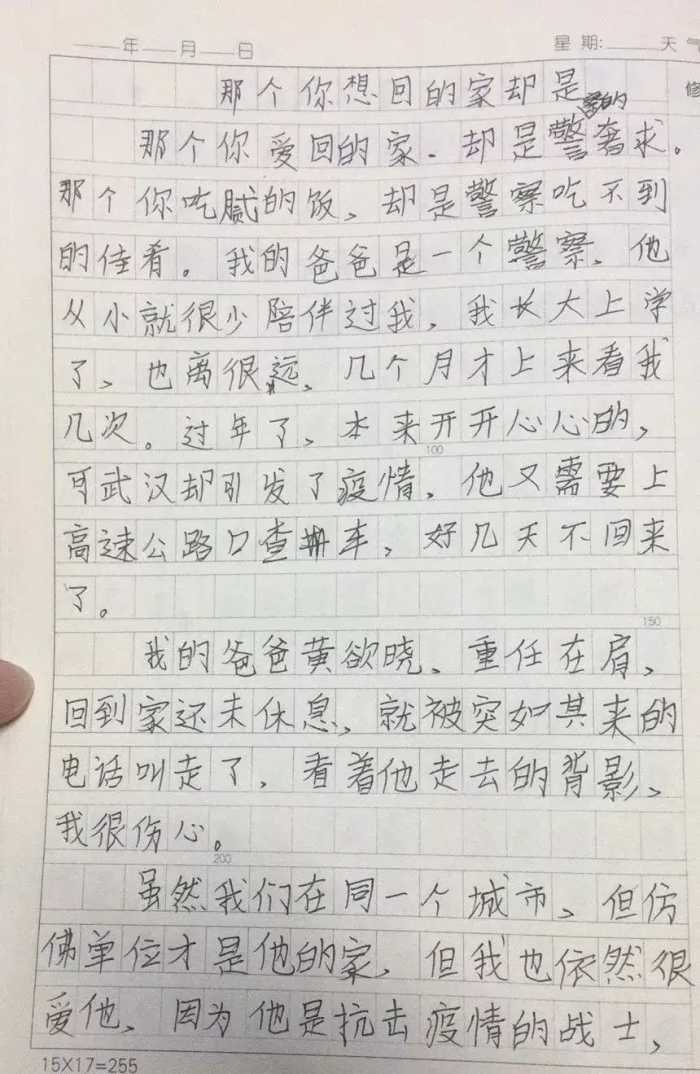 年 月 日 星期: 天气
修
那个你想回的家却是
那个你爱回的家.却是警奢求。
那个你吃腻的饭、却是警察吃不到
的佳看。我的爸爸是一个警察.他
从小就很少陪伴过我,我长大上学
了、也离很远、几个月才上来看我
几次。过年了、本来开开心心的,
100
可武汉却引发了疫情.他又需要上
高速公路口查车,好几天不回来
了。
150
我的爸爸黄欲晓、重任在肩,
回到家还未休息、就被突如其来的
电话叫走了,看着他走去的背影、
我很伤心。
200
虽然我们在同一个城市、但仿
佛单位才是他的家,但我也依然很
爱他、因为他是抗击疫情的战士、
15X17=255